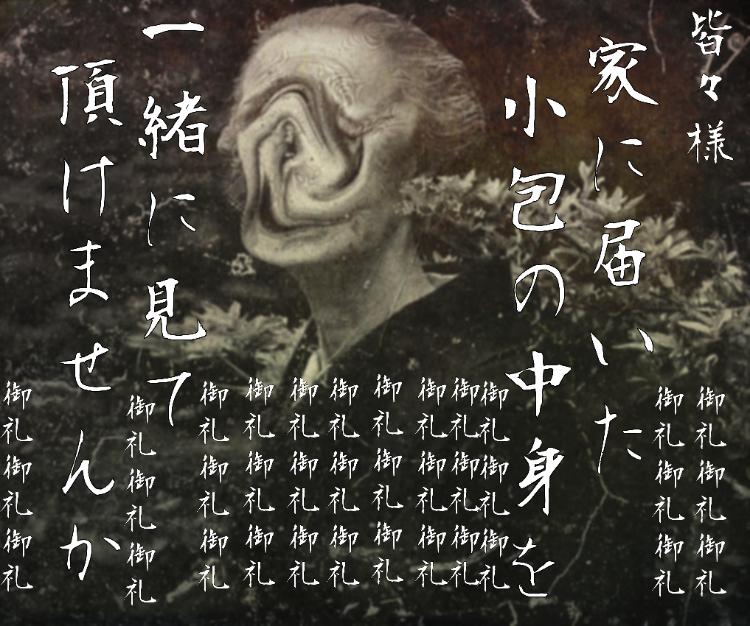 皆々様
家に届いた
小包の中身を
一緒に見て
頂けませんか
御礼御礼御礼
御礼御礼御礼
御礼御礼御礼
御礼御礼御礼
御礼御礼御礼
御礼御礼御礼
御礼御礼御礼
御礼御礼御礼
御礼御礼御礼
御礼御礼御礼
御礼御礼御礼
御礼御礼御礼